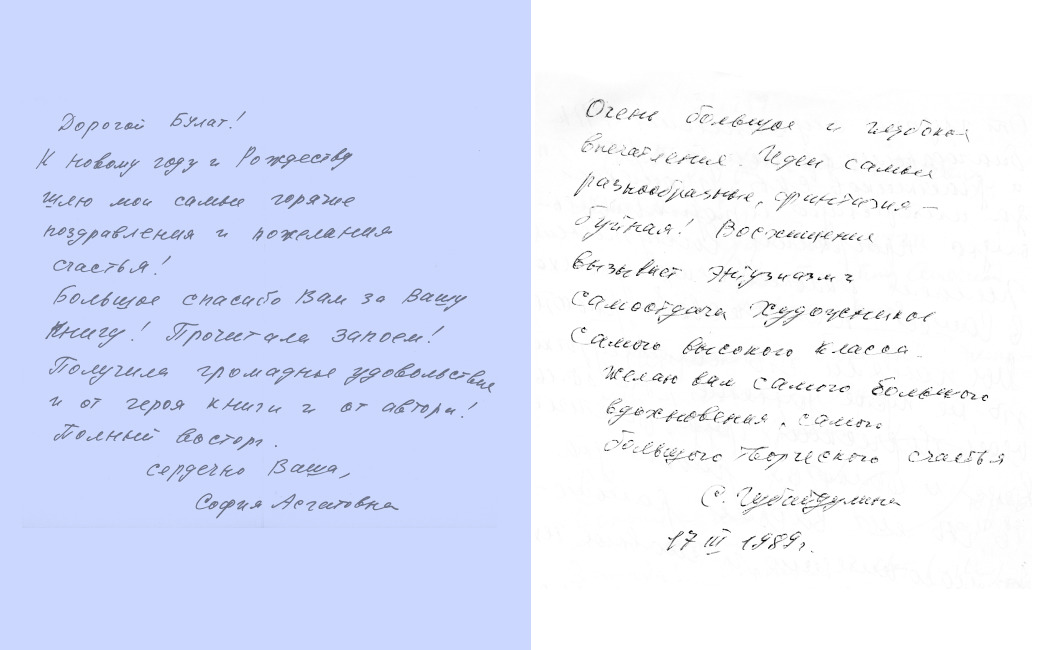 Дорогой Булат!
К Новому году и Рождеству
шлю мои самые горячие
поздравления и пожелания
счастья!
Большое спасибо Вам за Вашу
книгу! Прочитала запоем!
Получила громадное удовольствие
и от героя книги и от автора!
Полный восторг.
Сердечно Ваша,
София Асгатовна
Очень большое и глубокое
впечатление. Идеи самые
разнообразные, фантазия –
буйная! Восхищение
вызывает энтузиазм и
самоотдача художников
самого высокого класса.
Желаю вам самого большого
вдохновения, самого
большого творческого счастья
С. Губайдулина
17 III 1989г.